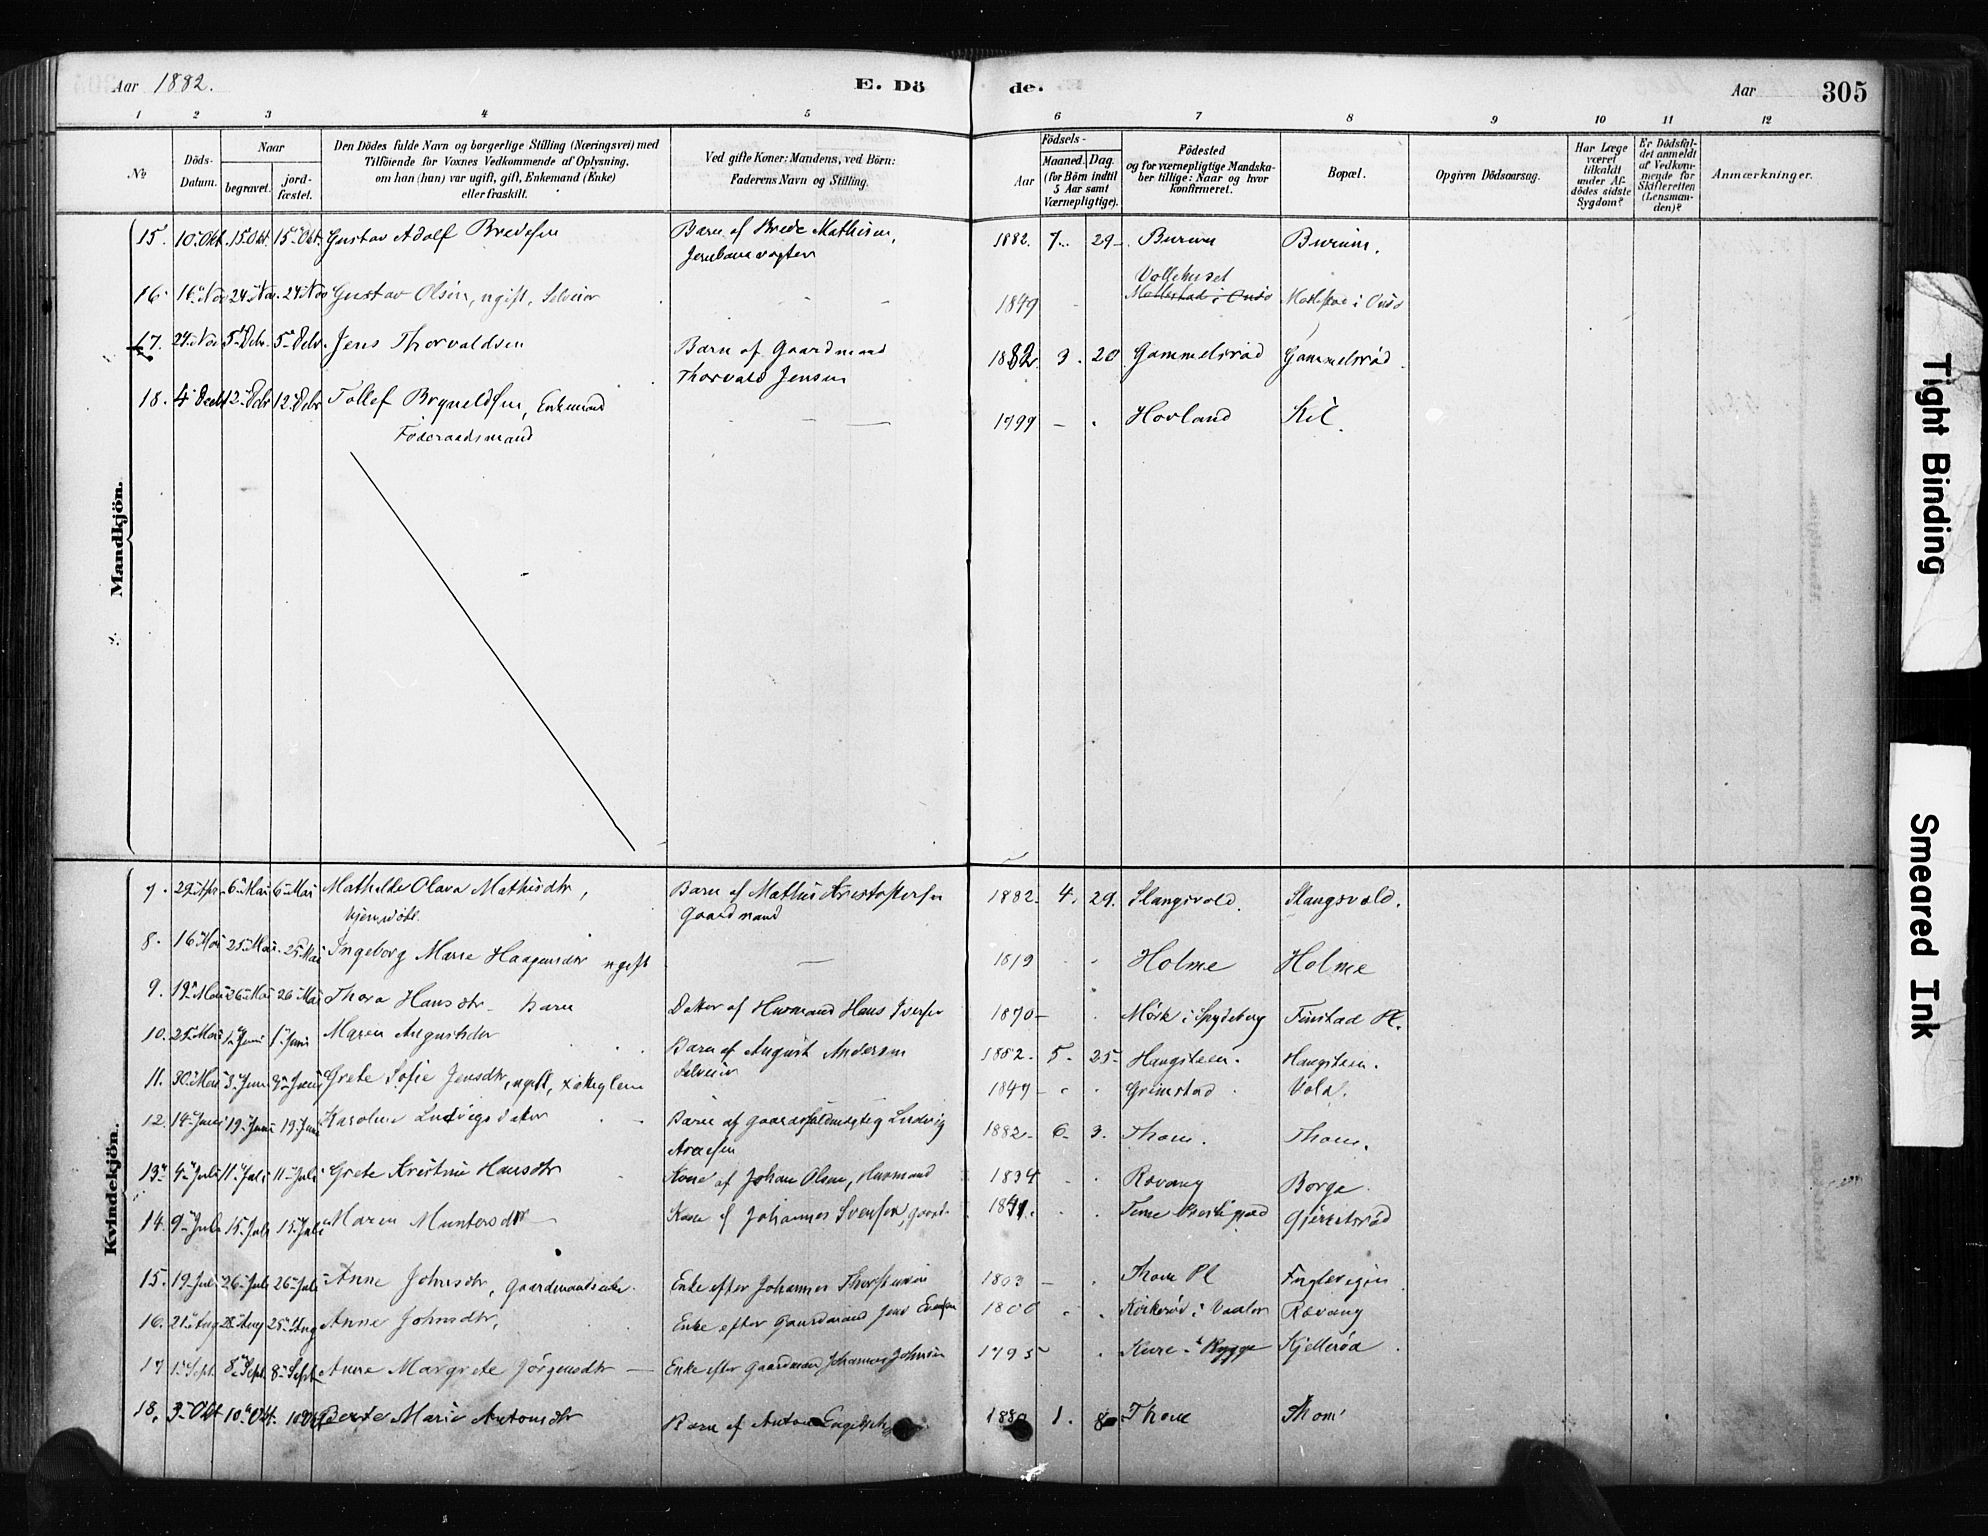 Aar 1882. E. Dö de. Aar 305
1 2 3 4 5 6 7 8 9 10 11 12
№
Döds-Datum.
Naar
begravet. jordfæstet.
Den Dödes fulde Navn og borgerlige Stilling (Næringsvei) med
Tilföiende for Voxnes Vedkommende af Oplysning,
om han (hun) var ugift, gift, Enkemand (Enke)
eller fraskilt.
Ved gifte Koner: Mandens, ved Börn:
Faderens Navn og Stilling.
Födsels-
Aar Maaned. Dag.
(for Börn indtil
5 Aar samt
Værnepligtige).
Födested
og for værnepligtige Mandska-
ber tillige: Naar og hvor
konfirmeret.
Bopæl.
Opgiven Dödsaarsag.
Har Læge
været
tilkaldt
under Af-
dödes sidste
Sygdom?
Er Dödsfal-
det anmeldt
af Vedkom-
mende for
Skifteretten
(Lensman-
den)?
Anmærkninger.
Mandkjön.
15. 10 Okt. 15 Okt. 15 Okt. Gustav Adolf Bredesen Barn af Brede Mathisen, 1882. 7. 29 Burum Burum.
Jernbanevogter
Vollehuset
16. 16 Nov 24 Nov. 24 Nov Gustav Olsen, ugift, Selveier 1849 i Onsö i Onsö
17. 24 Nov 5 Debr. 5 Debr. Jens Thorvaldsen Barn af Gaardmand 1882 9. 20 Gammelsröd Gammelsröd.
Thorvald Jensen
18. 4 Decbr 12 Debr 12 Debr Tollef Bryneldsen, Enkemand 1799 Hovland Kil.
Föderaadsmand
Kvindekjön.
7. 29 Apr. 6 Mai 6 Mai Mathilde Olava Mathisdtr, Barn af Mathis Kristofersen 1882. 4. 29. Slangsvold. Slangsvold.
hjemdöbt. Gaardmand
8. 16 Mai 25 Mai 25 Mai Ingeborg Marie Haagensdtr ugift 1819 Holme Holme
9. 19 Mai 26 Mai 26 Mai Thora Hansdtr Barn Datter af Husmand Hans Iversen 1870 Mörk i Spydeberg Finstad Pl.
10. 25 Mai 1 Juni 1 Juni Maren Augustsdtr Barn af August Andersen 1882. 5. 25 Haugsteen. Haugsteen.
Selveier
11. 30 Mai 3 Juni 3 Juni Grete Sofie Jensdtr, ugift, 1849 Grimstad Vold.
12. 14 Juni 19 Juni 19 Juni Karoline Ludvigsdatter Barn af Ludvig 1882. 6. 3. Thom. Thom.
13. 4 Juli 11 Juli 11 Juli Grete Kristine Hansdtr Kone af Johan Olsen, Husmand 1834 Rovang Borge.
14. 9 Juli 15 Juli 15 Juli Maren Muntersdtr Kone af Johannes Svensen, 1841. Gjerelsröd
15. 19 Juli 26 Juli 26 Juli Anne Johnsdtr, Gaardmandsenke. Enke efter Johannes Thorstensen 1803 Thom Pl
16. 21 Aug 28 Aug 25 Aug Anne Johnsdtr, Enke efter Gaardmand Jens Evensen 1800 Kirkeröd i Vaaler Rovang
17 1 Sept. 8 Sept. 8 Sept. Anne Margrete Jörgensdtr Enke efter Gaardmand Johannes Johnsen 1795 Kure i Rygge Kjelleröd
18. 3 Okt 10 Okt. 10 Okt Berte Marie Antonsdtr Barn af Anton 1. 8 Thom Thom
Tight Binding
Smeared Ink